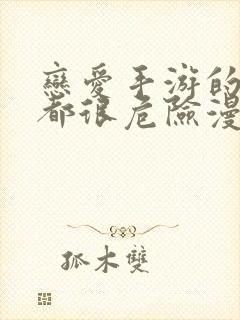 戀愛手游的
都很危險漫
孤木雙